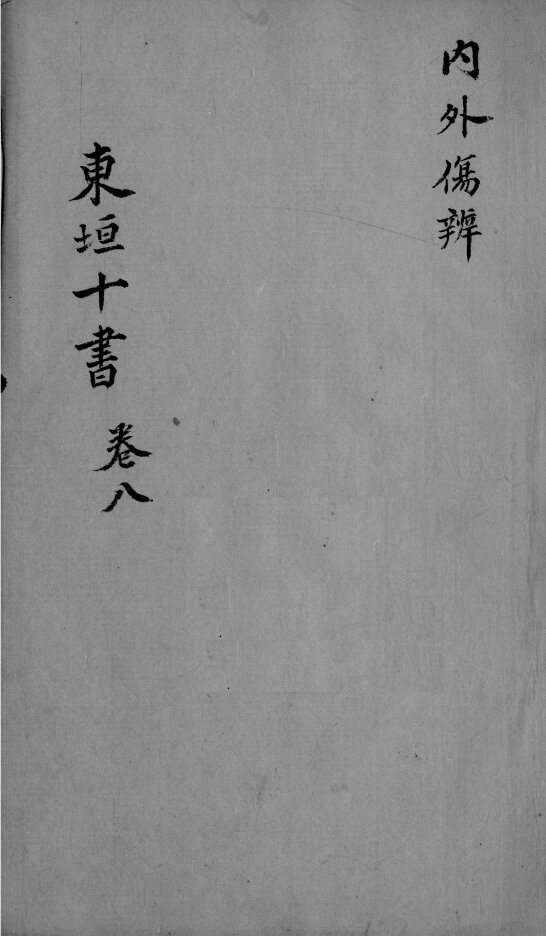 内外傷辨
東垣十書
卷八